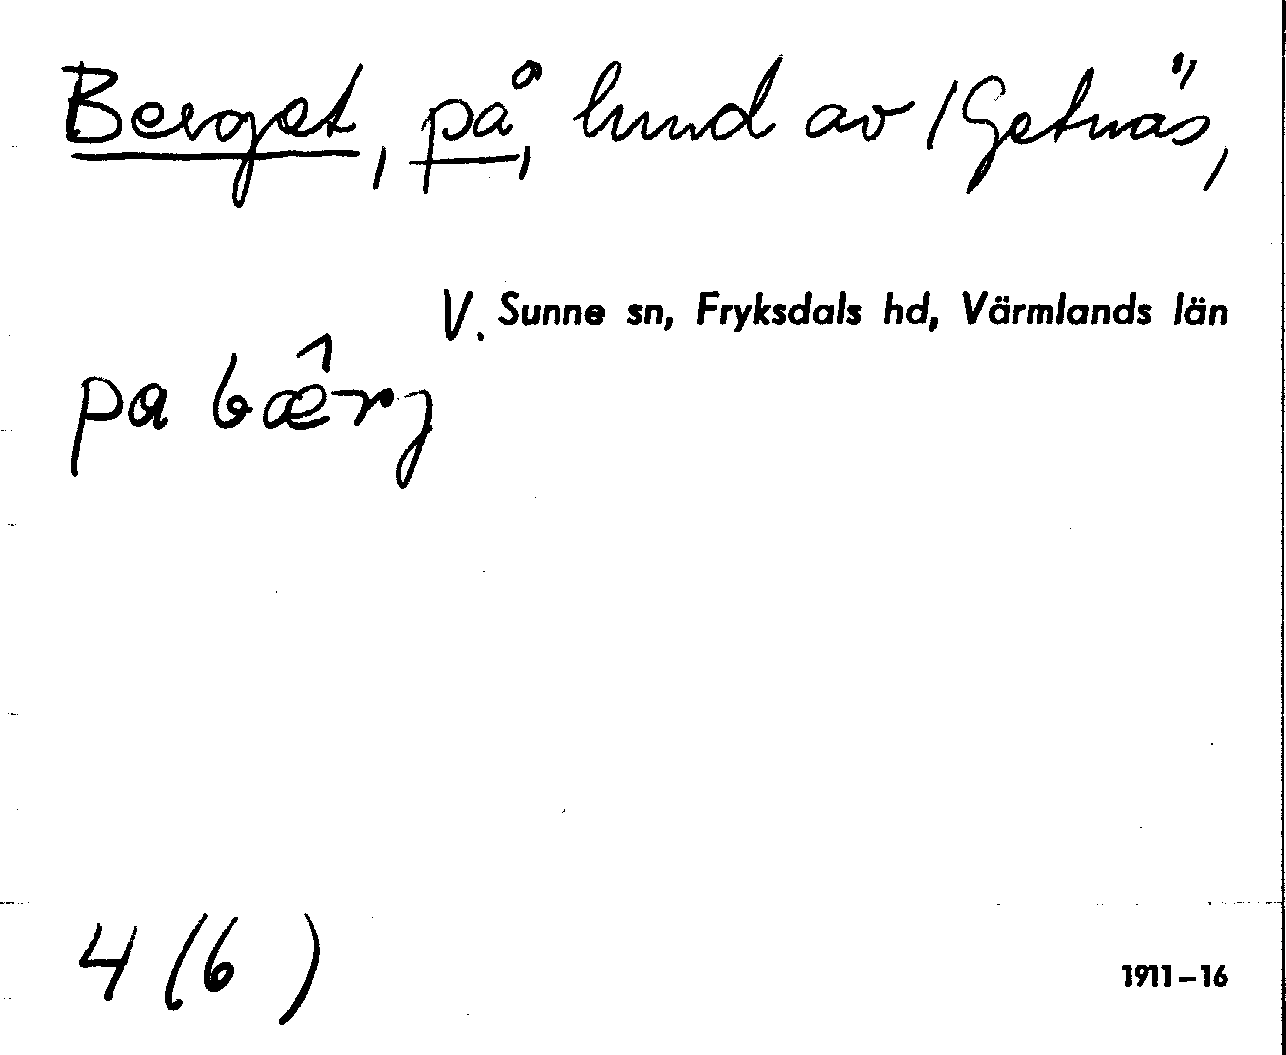 Berget, på, lund av / Getnäs,
V. Sunne sn, Fryksdals hd, Värmlands län
pa bæ̂rj
4 (6 )
1911–16